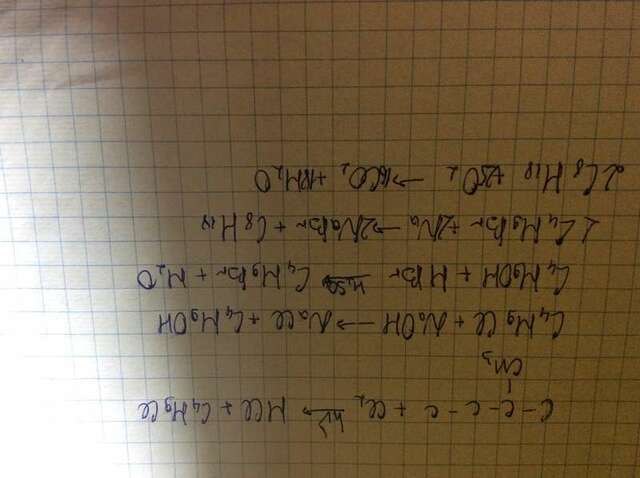 C - C - C - C + Cl₂ hν→ HCl + C₄H₉Cl
CH₃
C₄H₉Cl + NaOH → NaCl + C₄H₉OH
C₄H₉OH + HBr H₂SO₄→ C₄H₉Br + H₂O
2C₄H₉Br + 2Na → 2NaBr + C₈H₁₈
2C₈H₁₈ + 25O₂ → 16CO₂ + 18H₂O